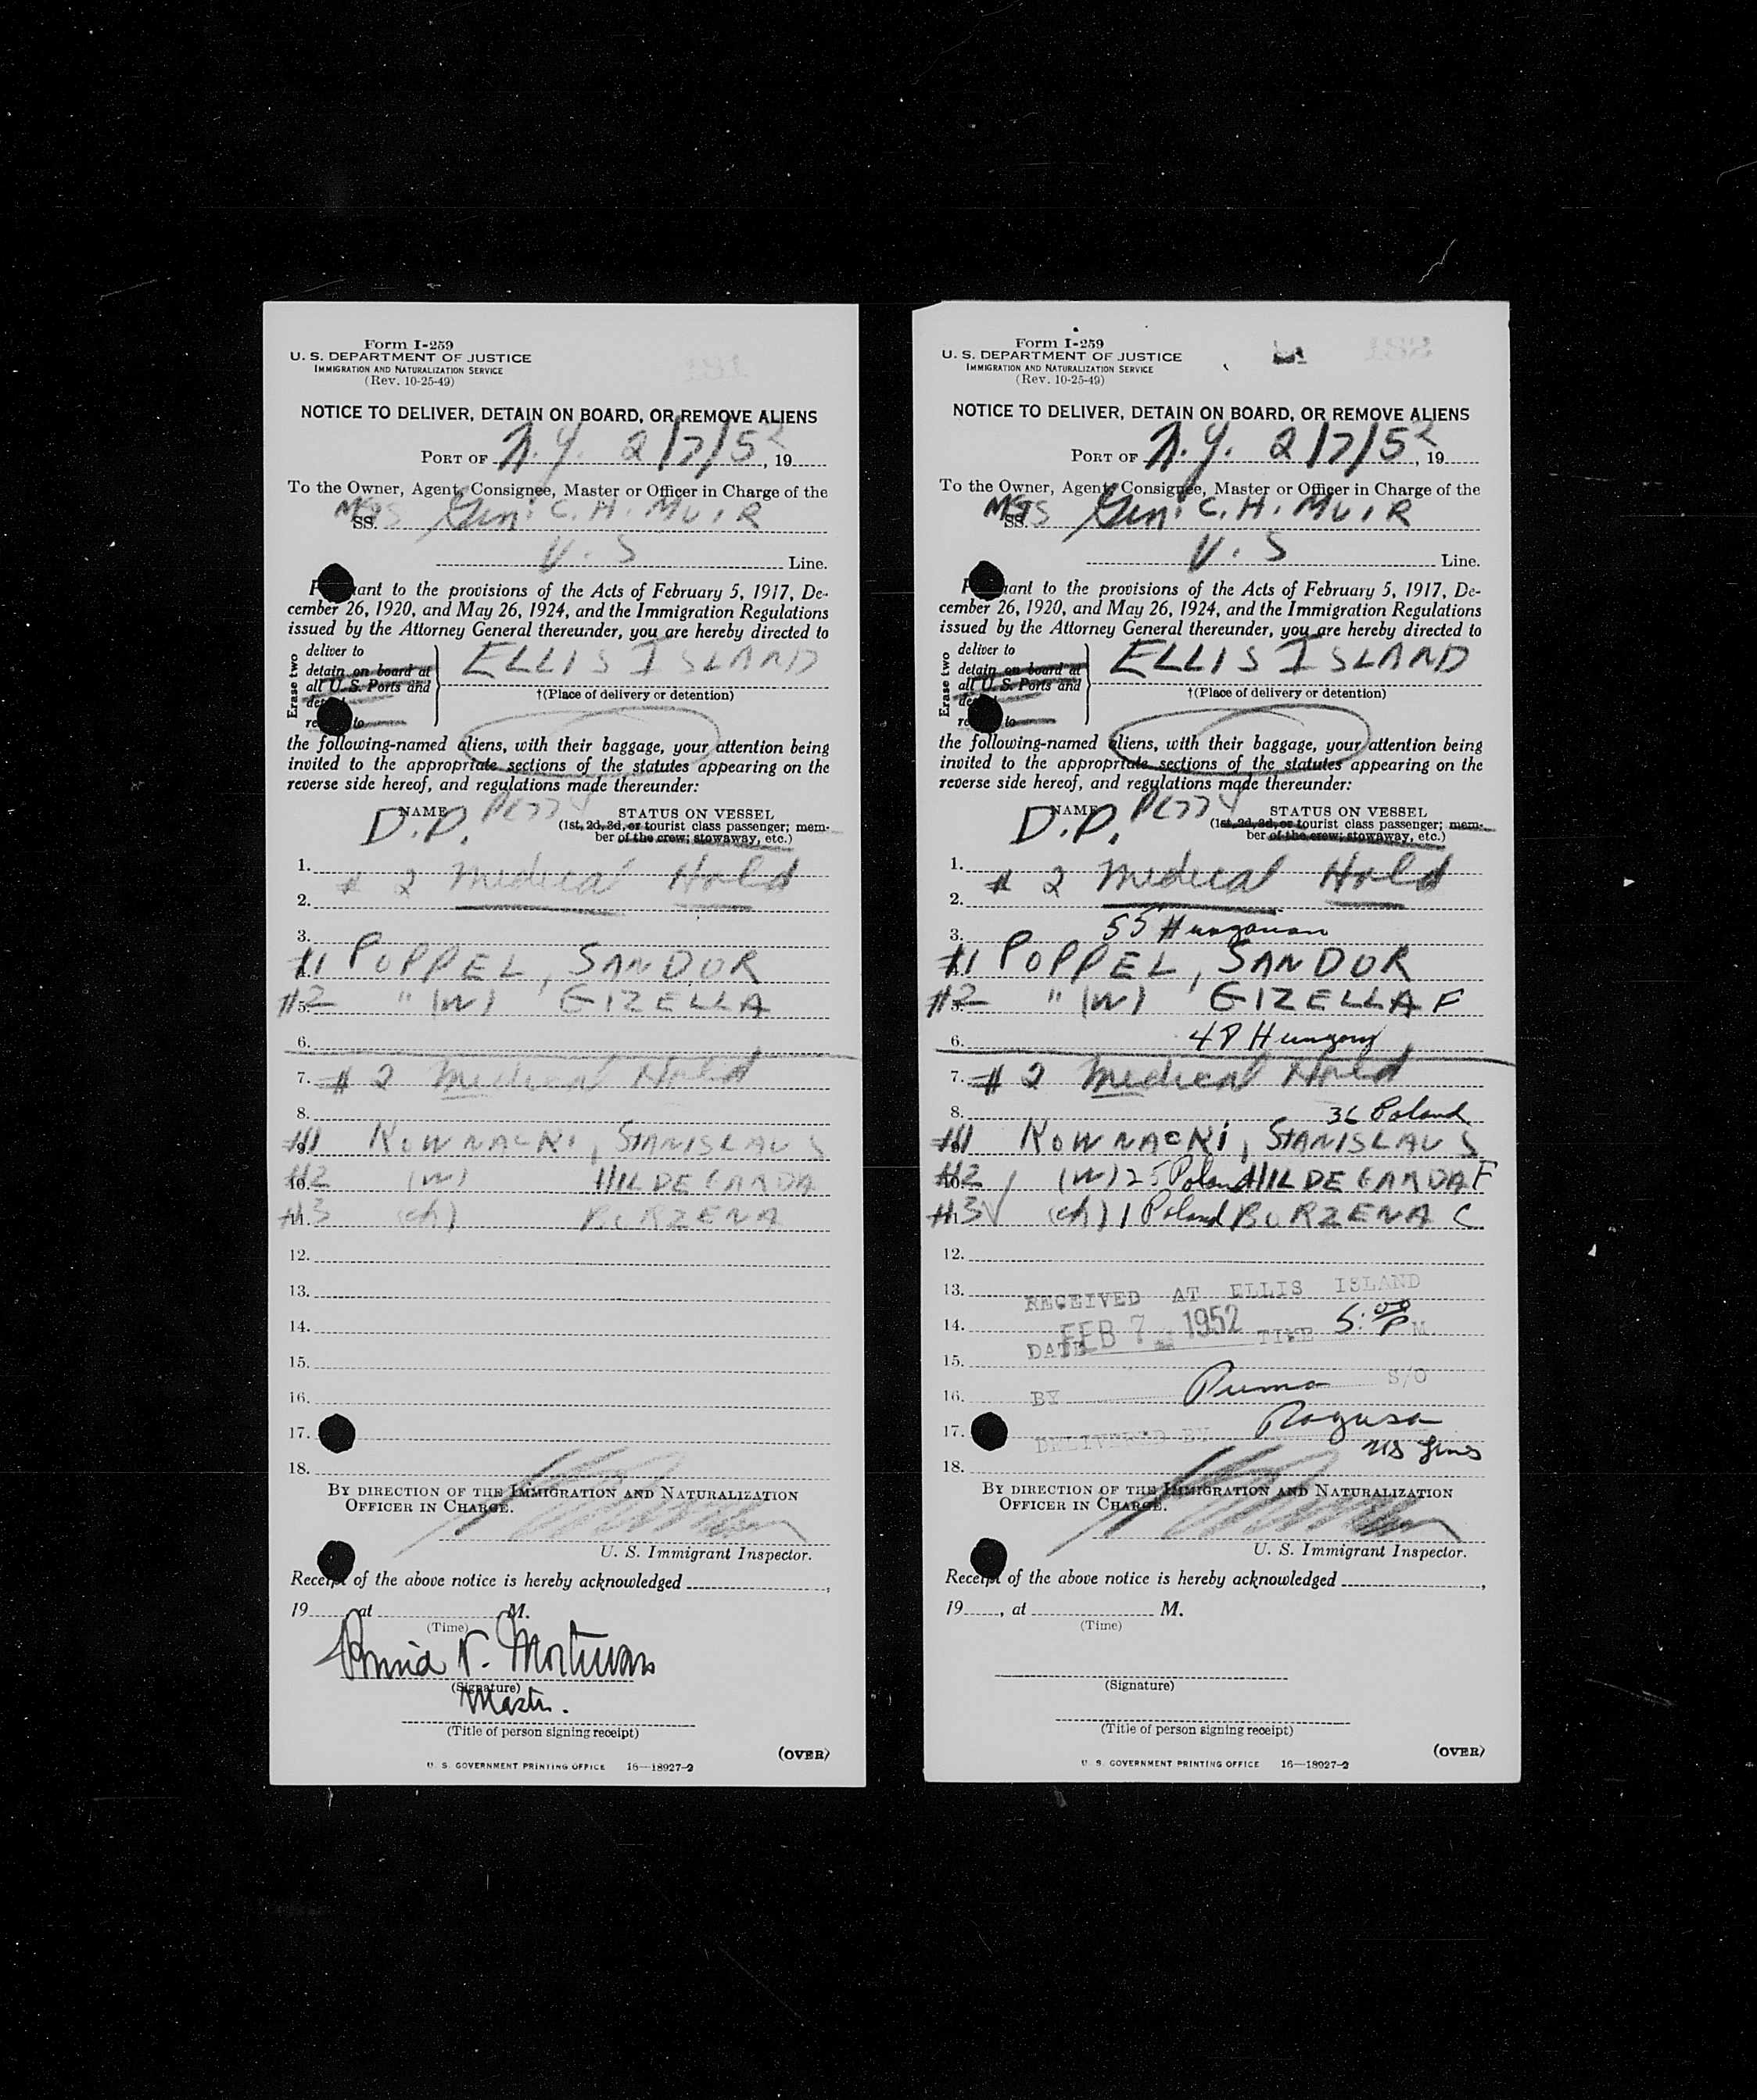 Form I-259
U. S. DEPARTMENT OF JUSTICE
IMMIGRATION AND NATURALIZATION SERVICE
(Rev. 10-25-49)
NOTICE TO DELIVER, DETAIN ON BOARD, OR REMOVE ALIENS
PORT OF N.Y. 2/7/52, 19
To the Owner, Agent, Consignee, Master or Officer in Charge of the
SS. Gen. C. H. MUIR
U. S Line.
ant to the provisions of the Acts of February 5, 1917, De-
cember 26, 1920, and May 26, 1924, and the Immigration Regulations
issued by the Attorney General thereunder, you are hereby directed to
Erase two
deliver to
detain on board at
all U. S. Ports and
to
ELLIS ISLAND
†(Place of delivery or detention)
the following-named aliens, with their baggage, your attention being
invited to the appropriate sections of the statutes appearing on the
reverse side hereof, and regulations made thereunder:
NAME D.P.
STATUS ON VESSEL
(1st, 2d, 3d, or tourist class passenger; mem-
ber of the crew; stowaway, etc.)
1.
# 2 Medical Hold
2.
3.
#1 POPPEL, SANDOR
#2 5. " (W) GIZELLA
6.
7. # 2 Medical Hold
8.
#1 9. KOWNACKI, STANISLAUS
#2 10. (W) HILDEGARDA
#3 11. (ch) BORZENA
12.
13.
14.
15.
16.
17.
18.
BY DIRECTION OF THE IMMIGRATION AND NATURALIZATION
OFFICER IN CHARGE.
U. S. Immigrant Inspector.
Receipt of the above notice is hereby acknowledged ,
19 , at M.
(Time)
(Signature)
Master.
(Title of person signing receipt)
(OVER)
U. S. GOVERNMENT PRINTING OFFICE 16—18927-2
Form I-259
U. S. DEPARTMENT OF JUSTICE
IMMIGRATION AND NATURALIZATION SERVICE
(Rev. 10-25-49)
NOTICE TO DELIVER, DETAIN ON BOARD, OR REMOVE ALIENS
PORT OF N.Y. 2/7/52, 19
To the Owner, Agent, Consignee, Master or Officer in Charge of the
SS. Gen. C. H. MUIR
U. S Line.
ant to the provisions of the Acts of February 5, 1917, De-
cember 26, 1920, and May 26, 1924, and the Immigration Regulations
issued by the Attorney General thereunder, you are hereby directed to
Erase two
deliver to
detain on board at
all U. S. Ports and
to
ELLIS ISLAND
†(Place of delivery or detention)
the following-named aliens, with their baggage, your attention being
invited to the appropriate sections of the statutes appearing on the
reverse side hereof, and regulations made thereunder:
NAME D.P.
STATUS ON VESSEL
(1st, 2d, 3d, or tourist class passenger; mem-
ber of the crew; stowaway, etc.)
1.
# 2 Medical Hold
2.
55 Hungarian
3.
#1 POPPEL, SANDOR
#2 5. " (W) GIZELLA F
6. 48 Hungary
7. # 2 Medical Hold
8. 36 Poland
#1 9. KOWNACKI, STANISLAUS
#2 10. (W) 25 Poland HILDEGARDA F
#3 11. (ch) 1 Poland BORZENA C
12.
13. RECEIVED AT ELLIS ISLAND
14. DATE FEB 7 1952 TIME 5:00 P M.
15.
16. BY Puma S/O
17. DELIVERED BY Ragusa
US Lines
18.
BY DIRECTION OF THE IMMIGRATION AND NATURALIZATION
OFFICER IN CHARGE.
U. S. Immigrant Inspector.
Receipt of the above notice is hereby acknowledged ,
19 , at M.
(Time)
(Signature)
(Title of person signing receipt)
(OVER)
U. S. GOVERNMENT PRINTING OFFICE 16—18927-2